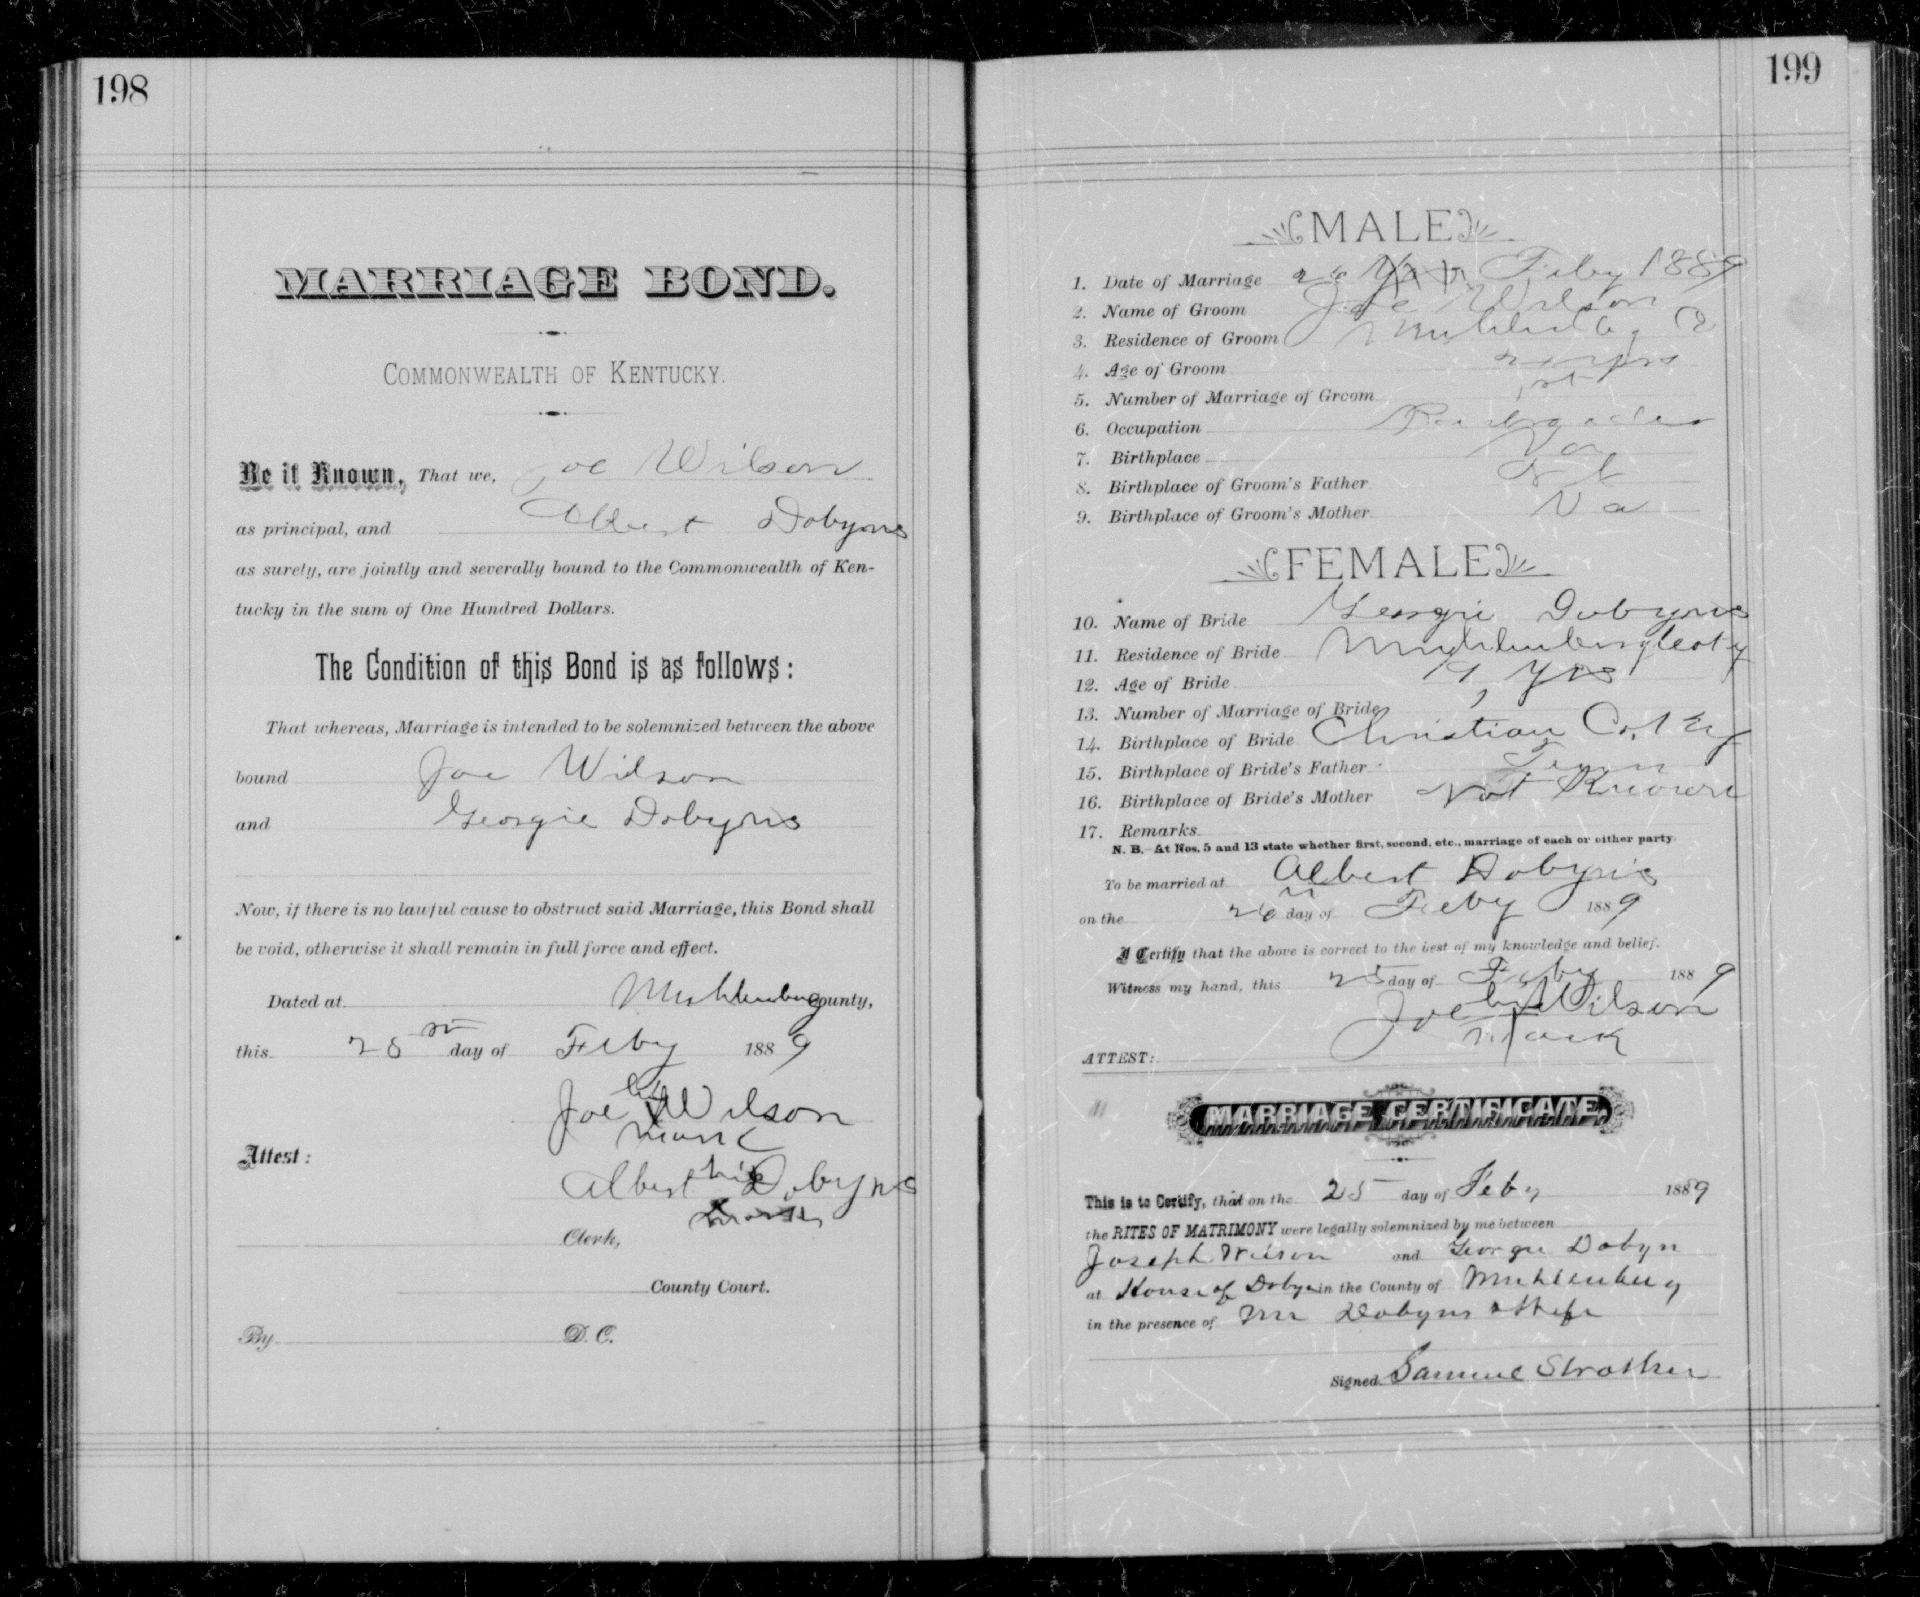 198
MARRIAGE BOND.
COMMONWEALTH OF KENTUCKY.
Be it Known, That we, Joe Wilson
as principal, and Albert Dobyns
as surety, are jointly and severally bound to the Commonwealth of Ken-
tucky in the sum of One Hundred Dollars.
The Condition of this Bond is as follows:
That whereas, Marriage is intended to be solemnized between the above
bound Joe Wilson
and Georgie Dobyns
Now, if there is no lawful cause to obstruct said Marriage, this Bond shall
be void, otherwise it shall remain in full force and effect.
Dated at Muhlenberg County,
this 25 day of Feby 1889
his
Joe X Wilson
mark
Attest:
Albert his Dobyns
X mark
Clerk,
County Court.
By D. C.
199
MALE
1. Date of Marriage 26 Feby 1889
2. Name of Groom Joe Wilson
3. Residence of Groom
4. Age of Groom yrs
5. Number of Marriage of Groom 1st
6. Occupation
7. Birthplace Va
8. Birthplace of Groom's Father
9. Birthplace of Groom's Mother Va
FEMALE
10. Name of Bride Georgie Dobyns
11. Residence of Bride Muhlenberg Conty
12. Age of Bride 19 yrs
13. Number of Marriage of Bride
14. Birthplace of Bride Christian Co, Ky
15. Birthplace of Bride's Father Tenn
16. Birthplace of Bride's Mother Not Known
17. Remarks
N. B.—At Nos. 5 and 13 state whether first, second, etc., marriage of each or either party.
To be married at Albert Dobyns
on the 26 day of Feby 1889
I Certify that the above is correct to the best of my knowledge and belief.
Witness my hand, this 25 day of Feby 1889
his
Joe X Wilson
mark
ATTEST:
MARRIAGE CERTIFICATE.
This is to Certify, that on the 25 day of Feby 1889
the RITES OF MATRIMONY were legally solemnized by me between
Joseph Wilson and Georgie Dobyn
at House of Dobyn in the County of Muhlenburg
in the presence of Mr Dobyns
Signed Samuel Strother